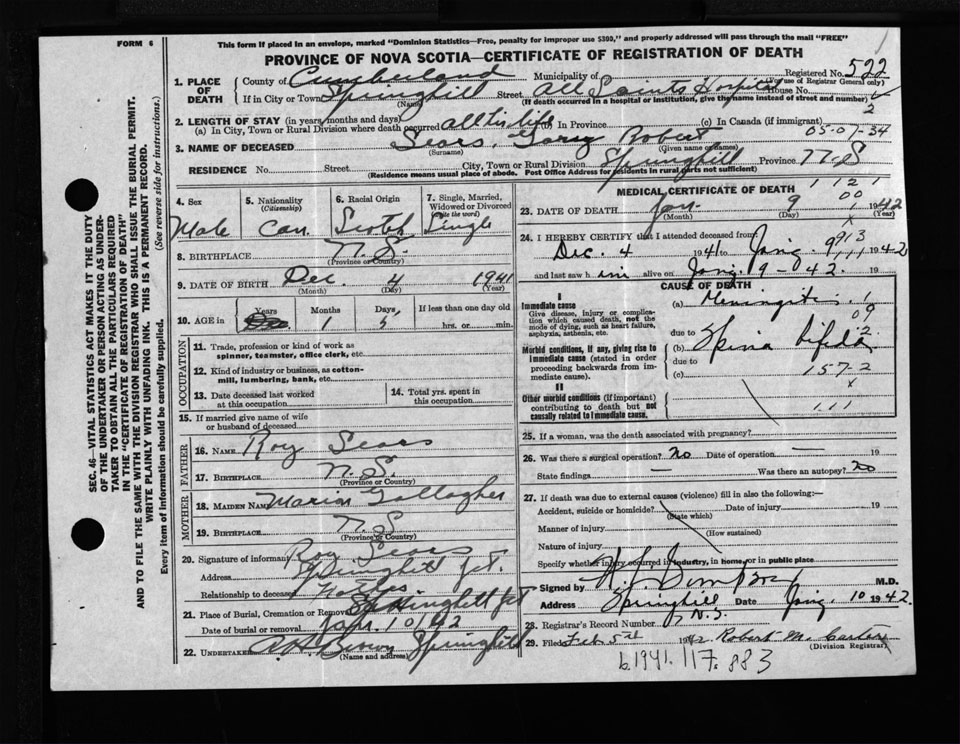 FORM 6
This form if placed in an envelope, marked "Dominion Statistics—Free, penalty for improper use $300," and properly addressed will pass through the mail "FREE"
PROVINCE OF NOVA SCOTIA—CERTIFICATE OF REGISTRATION OF DEATH
Registered No. 522
(For use of Registrar General only)
1. PLACE OF DEATH
County of Cumberland Municipality of
If in City or Town Springhill Street All Saints Hospital House No.
(Name) (If death occurred in a hospital or institution, give the name instead of street and number)
2
2. LENGTH OF STAY (in years, months and days)
(a) In City, Town or Rural Division where death occurred all his life (b) In Province (c) In Canada (if immigrant)
05-07-34
3. NAME OF DECEASED Sears, Gary Robert
(Surname) (Given name or names)
RESIDENCE No. Street City, Town or Rural Division Springhill Province N.S
(Residence means usual place of abode. Post Office Address for residents in rural parts not sufficient)
4. Sex Male
5. Nationality (Citizenship) Can.
6. Racial Origin Scotch
7. Single, Married, Widowed or Divorced (write the word) Single
8. BIRTHPLACE N.S.
(Province or Country)
9. DATE OF BIRTH Dec. 4 1941
(Month) (Day) (Year)
10. AGE in Years Months 1 Days 5 If less than one day old hrs. or min.
OCCUPATION
11. Trade, profession or kind of work as spinner, teamster, office clerk, etc.
12. Kind of industry or business, as cotton-mill, lumbering, bank, etc.
13. Date deceased last worked at this occupation
14. Total yrs. spent in this occupation
15. If married give name of wife or husband of deceased
FATHER
16. NAME Roy Sears
17. BIRTHPLACE N.S.
(Province or Country)
MOTHER
18. MAIDEN NAME Marion Gallagher
19. BIRTHPLACE N.S
(Province or Country)
20. Signature of informant Roy Sears
Address Springhill Jct.
Relationship to deceased Father
21. Place of Burial, Cremation or Removal Springhill Jct
Date of burial or removal Jan. 10/42
22. UNDERTAKER Brown Springhill
(Name and address)
MEDICAL CERTIFICATE OF DEATH
1 1 2 1
00
23. DATE OF DEATH Jan. 9 1942
(Month) (Day) (Year)
24. I HEREBY CERTIFY that I attended deceased from
Dec. 4 1941 to Jan. 9 1942
and last saw him alive on Jan. 9-042. 19
CAUSE OF DEATH
I
Immediate cause
Give disease, injury or complication which caused death, not the mode of dying, such as heart failure, asphyxia, asthenia, etc.
(a) Meningitis
1
09
due to
Morbid conditions, if any, giving rise to immediate cause (stated in order proceeding backwards from immediate cause).
(b) Spina bifida
2
due to
(c) 157-2
x
II
Other morbid conditions (if important) contributing to death but not causally related to immediate cause.
111
25. If a woman, was the death associated with pregnancy?
26. Was there a surgical operation? No Date of operation — 19
State findings — Was there an autopsy? No
27. If death was due to external causes (violence) fill in also the following:—
Accident, suicide or homicide? Date of injury 19
(State which)
Manner of injury
(How sustained)
Nature of injury
Specify whether injury occurred in industry, in home, or in public place
Signed by M.D.
Address Springhill N.S. Date Jan. 10 1942.
28. Registrar's Record Number 7
29. Filed Feb 5th 1942 Robert M. Carter
(Division Registrar)
b.1941. 117.883
SEC. 46—VITAL STATISTICS ACT MAKES IT THE DUTY
OF THE UNDERTAKER OR PERSON ACTING AS UNDER-
TAKER TO OBTAIN ALL THE PARTICULARS REQUIRED
IN THE "CERTIFICATE OF REGISTRATION OF DEATH"
AND TO FILE THE SAME WITH THE DIVISION REGISTRAR WHO SHALL ISSUE THE BURIAL PERMIT.
WRITE PLAINLY WITH UNFADING INK. THIS IS A PERMANENT RECORD.
Every item of information should be carefully supplied. (See reverse side for instructions.)